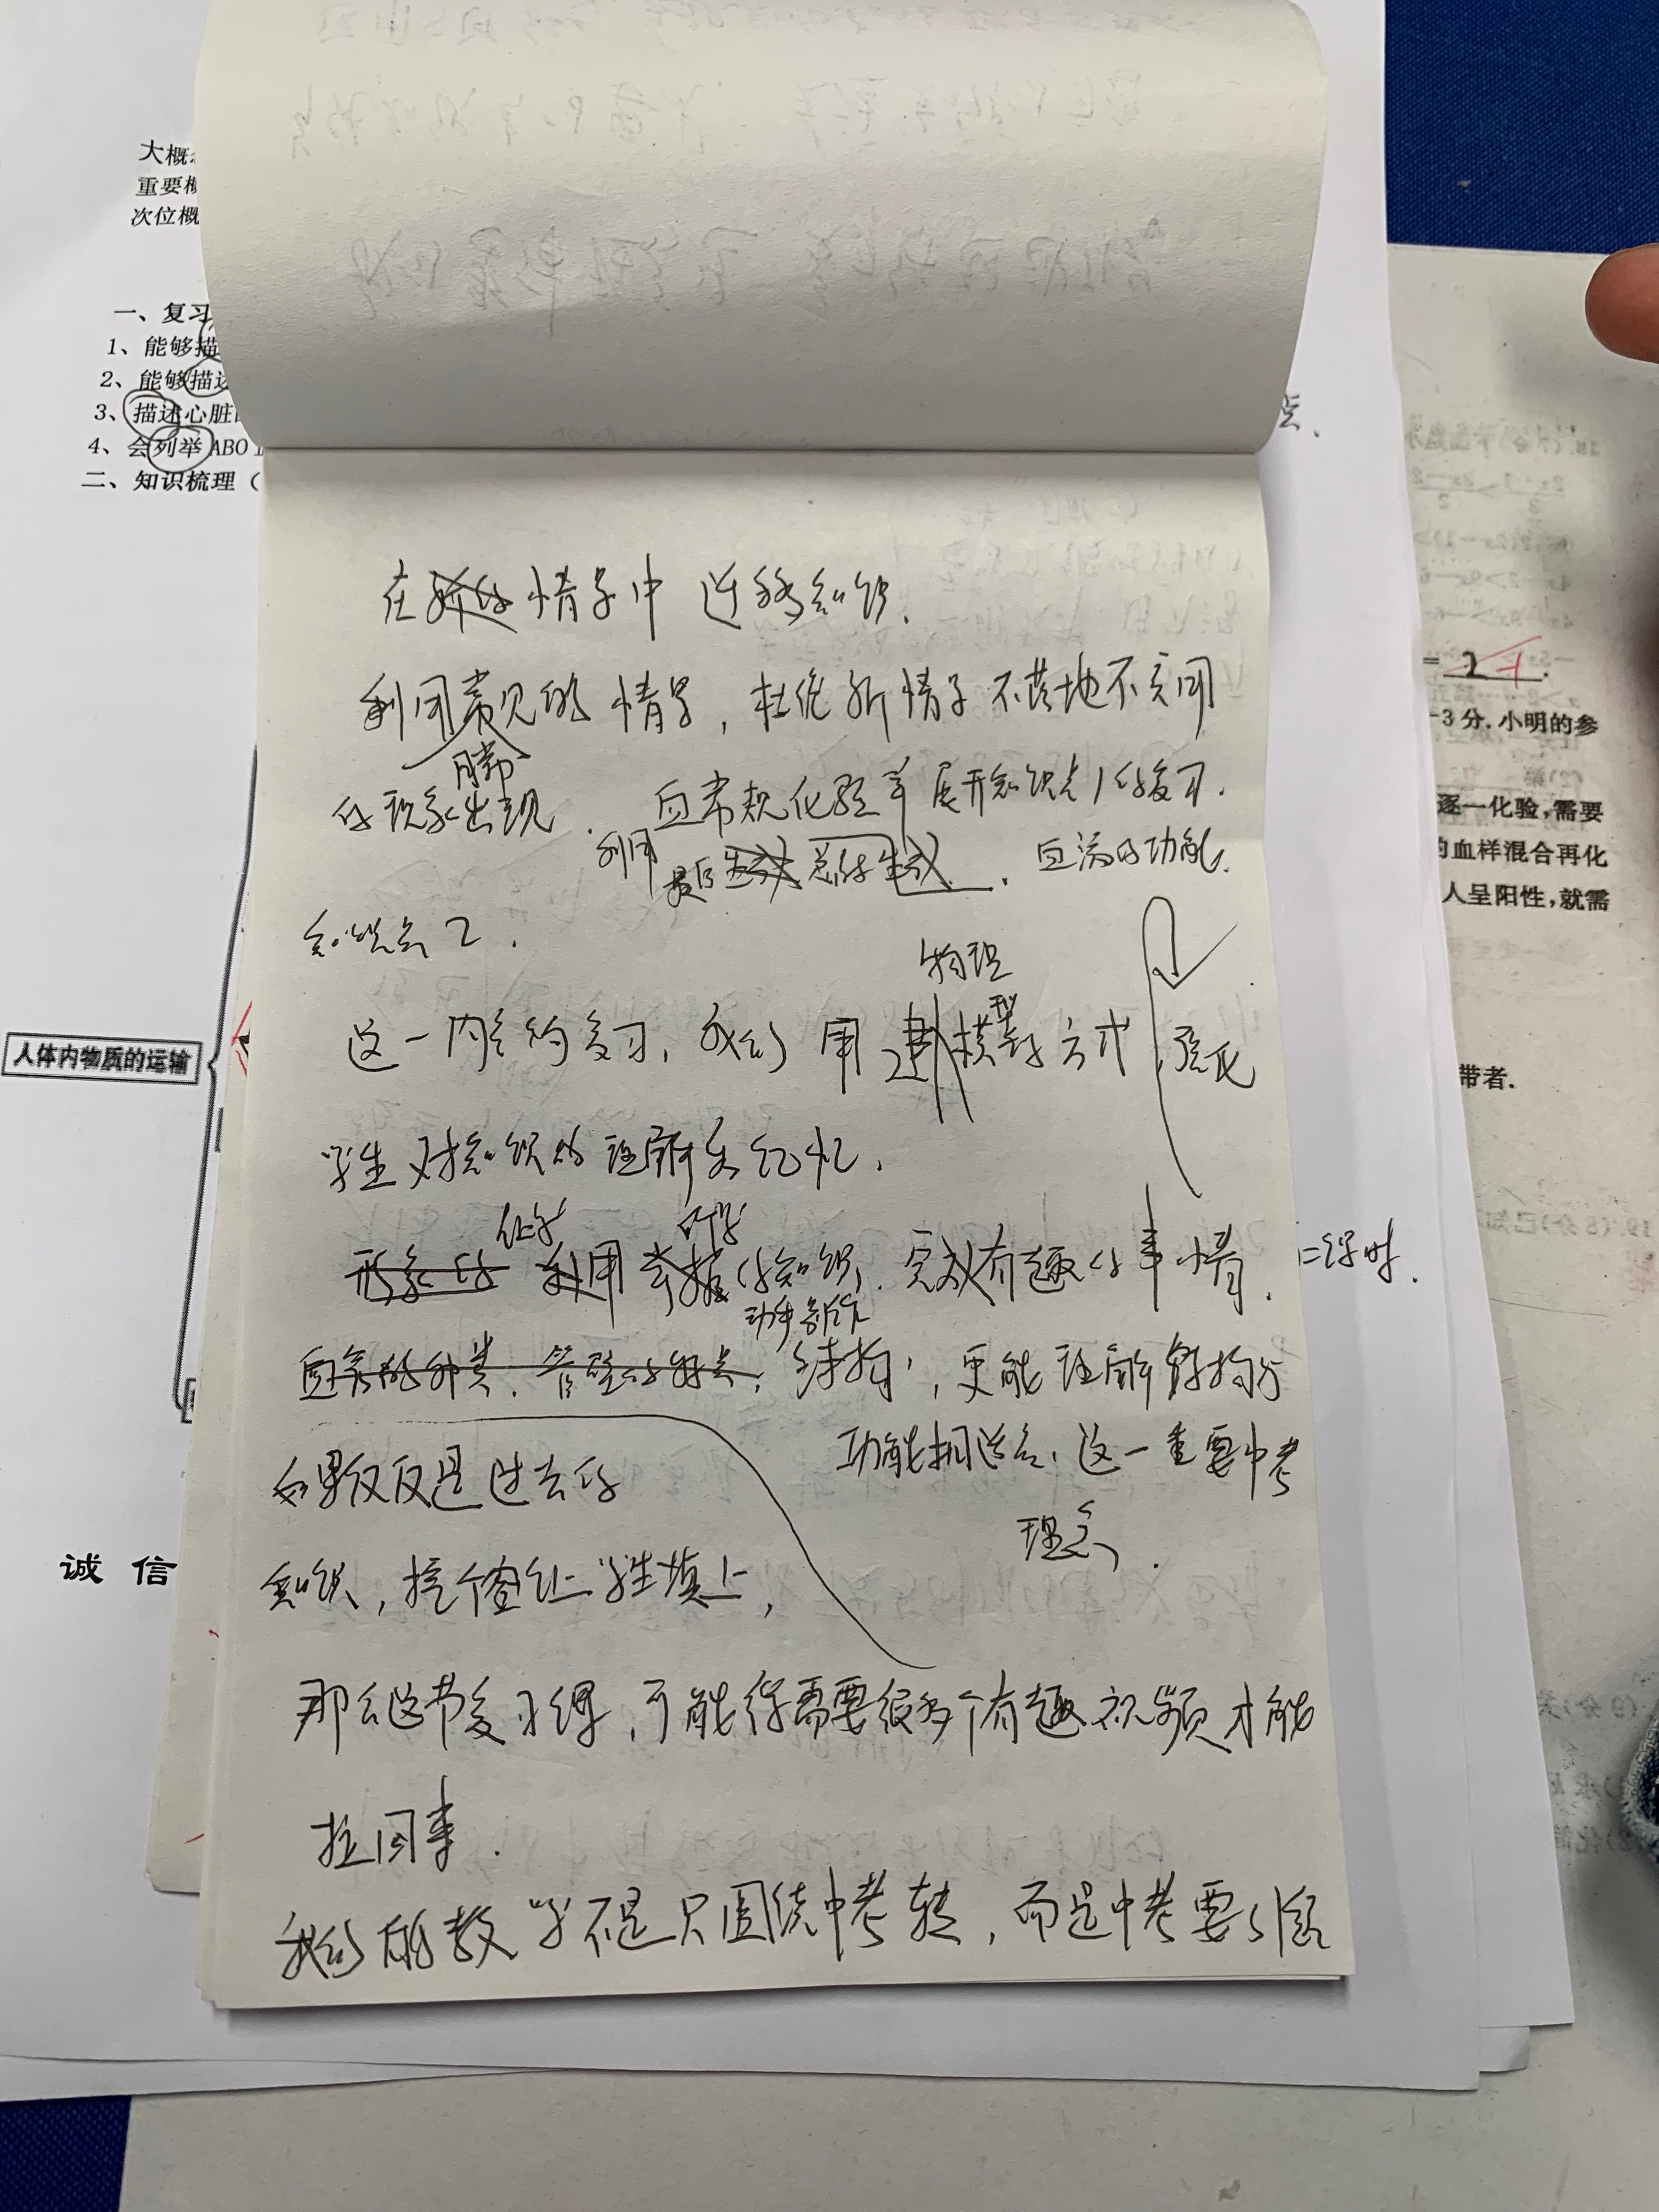 大概
重要概
次位概
一、复习
1、能够描
2、能够描述
3、描述心脏
4、会列举 ABO
二、知识梳理（
人体内物质的运输
诚 信
在 情景中 迁移知识.
利用常见的 情景，杜绝新情景不落地不实用
的现象出现.
利用 血常规化验单展开知识点1的复习.
最后 总结生成 . 血流的功能.
知识点2.
物理
这一内容的复习，我们 用 建模型的方式，强化
学生对知识的理解和记忆.
让学 所学
用 的知识，完成有趣的事情.
二课时.
动手制作
血管的种类、管壁的特点，结构，更能理解结构与
功能相适合，这一重要中考
理念.
如果仅仅是过去的
知识，挖个空让学生填上，
那么这节复习课，可能得需要很多个有趣视频才能
拉回来.
我们的教学不是只围绕中考转，而是中考要
= 2
-3 分. 小明的参
逐一化验，需要
的血样混合再化
人呈阳性，就需
带者.